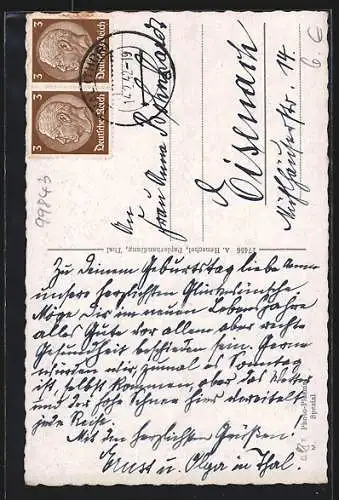 3
Deutsches Reich
3
Deutsches Reich
14.2.42-19
6.€
99843
An
Frau Anna
Eisenach
Mühlhäuserstr. 14.
17456 A. Henschel, Papierhandlung, Thal
Zu Deinem Geburtstag liebe Anna
unsere herzlichsten Glückwünsche.
Möge Dir im neuen Lebensjahre
alles Gute vor allem aber rechte
Gesundheit beschieden sein. Gerne
würden wir, zumal es Sonntag
ist, selbst kommen, aber das Wetter
und der hohe Schnee hier vereitelt
jede Reise.
Mit den herzlichsten Grüßen!
Ernst u. Olga in Thal.
Spezial